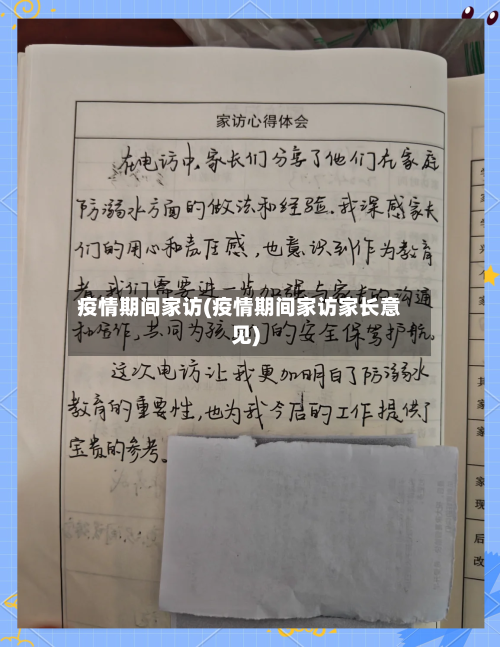 家访心得体会
在电访中,家长们分享了他们在家庭
防溺水方面的做法和经验。我深感家长
们的用心和责任感,也意识到作为教育
者,我们需要进一步加强与家长的沟通
疫情期间家访(疫情期间家访家长意
见)
和合作,共同为孩子们的安全保驾护航。
这次电访让我更加明白了防溺水
教育的重要性,也为我今后的工作提供了
宝贵的参考。
家
现
后
改